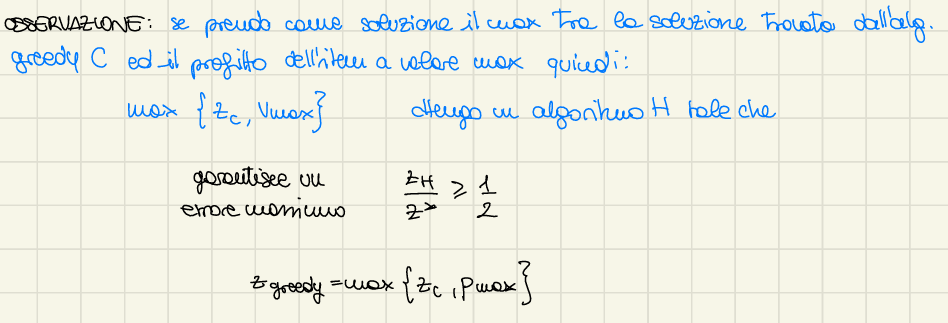 OSSERVAZIONE: se prendo come soluzione il max tra la soluzione trovata dall'alg.
greedy C ed il profitto dell'item a valore max quindi:
max {z_c, Vmax} ottengo un algoritmo H tale che
garantisce un
errore massimo
z_H / z* ≥ 1/2
z_greedy = max {z_c, pmax}